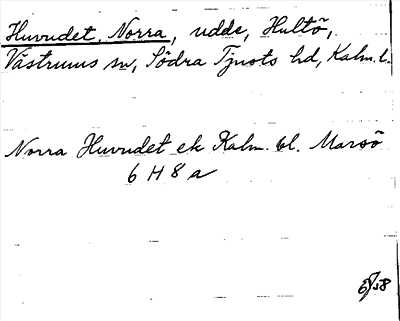 Huvudet, Norra, udde, Hultö,
Västrums sn, Södra Tjusts hd, Kalm. l.
Norra Huvudet ek Kalm. bl. Marsö
6 H 8 a